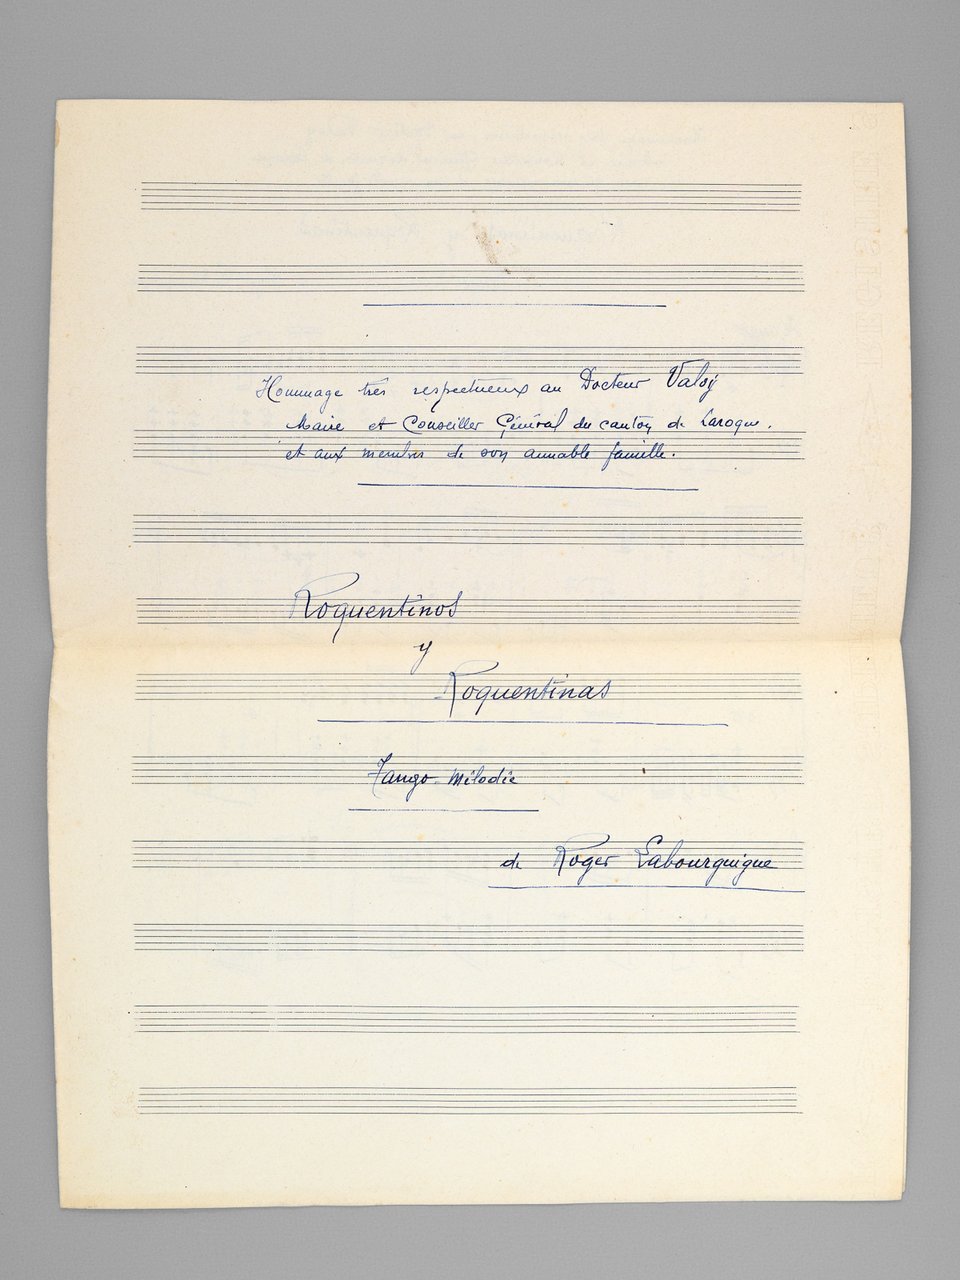 Hommage très respectueux au Docteur Valoy
Maire et Conseiller Général du canton de Laroque.
et aux membres de son aimable famille.
Roquentinos
y
Roquentinas
Tango-Mélodie
de Roger Labourguigue